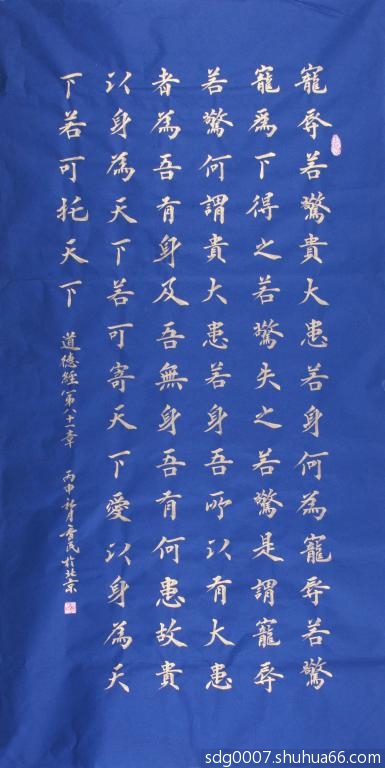 寵辱若驚貴大患若身何為寵辱若驚
寵為下得之若驚失之若驚是謂寵辱
若驚何謂貴大患若身吾所以有大患
者為吾有身及吾無身吾有何患故貴
以身為天下若可寄天下愛以身為天
下若可托天下
道德經第八十一章 丙申 月 民於北京
sdg0007.shuhua66.com